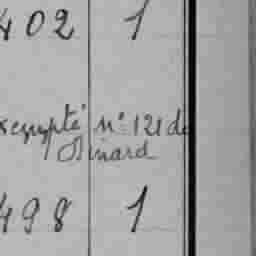 402 1
exempté n° 121 de
Dinard
498 1